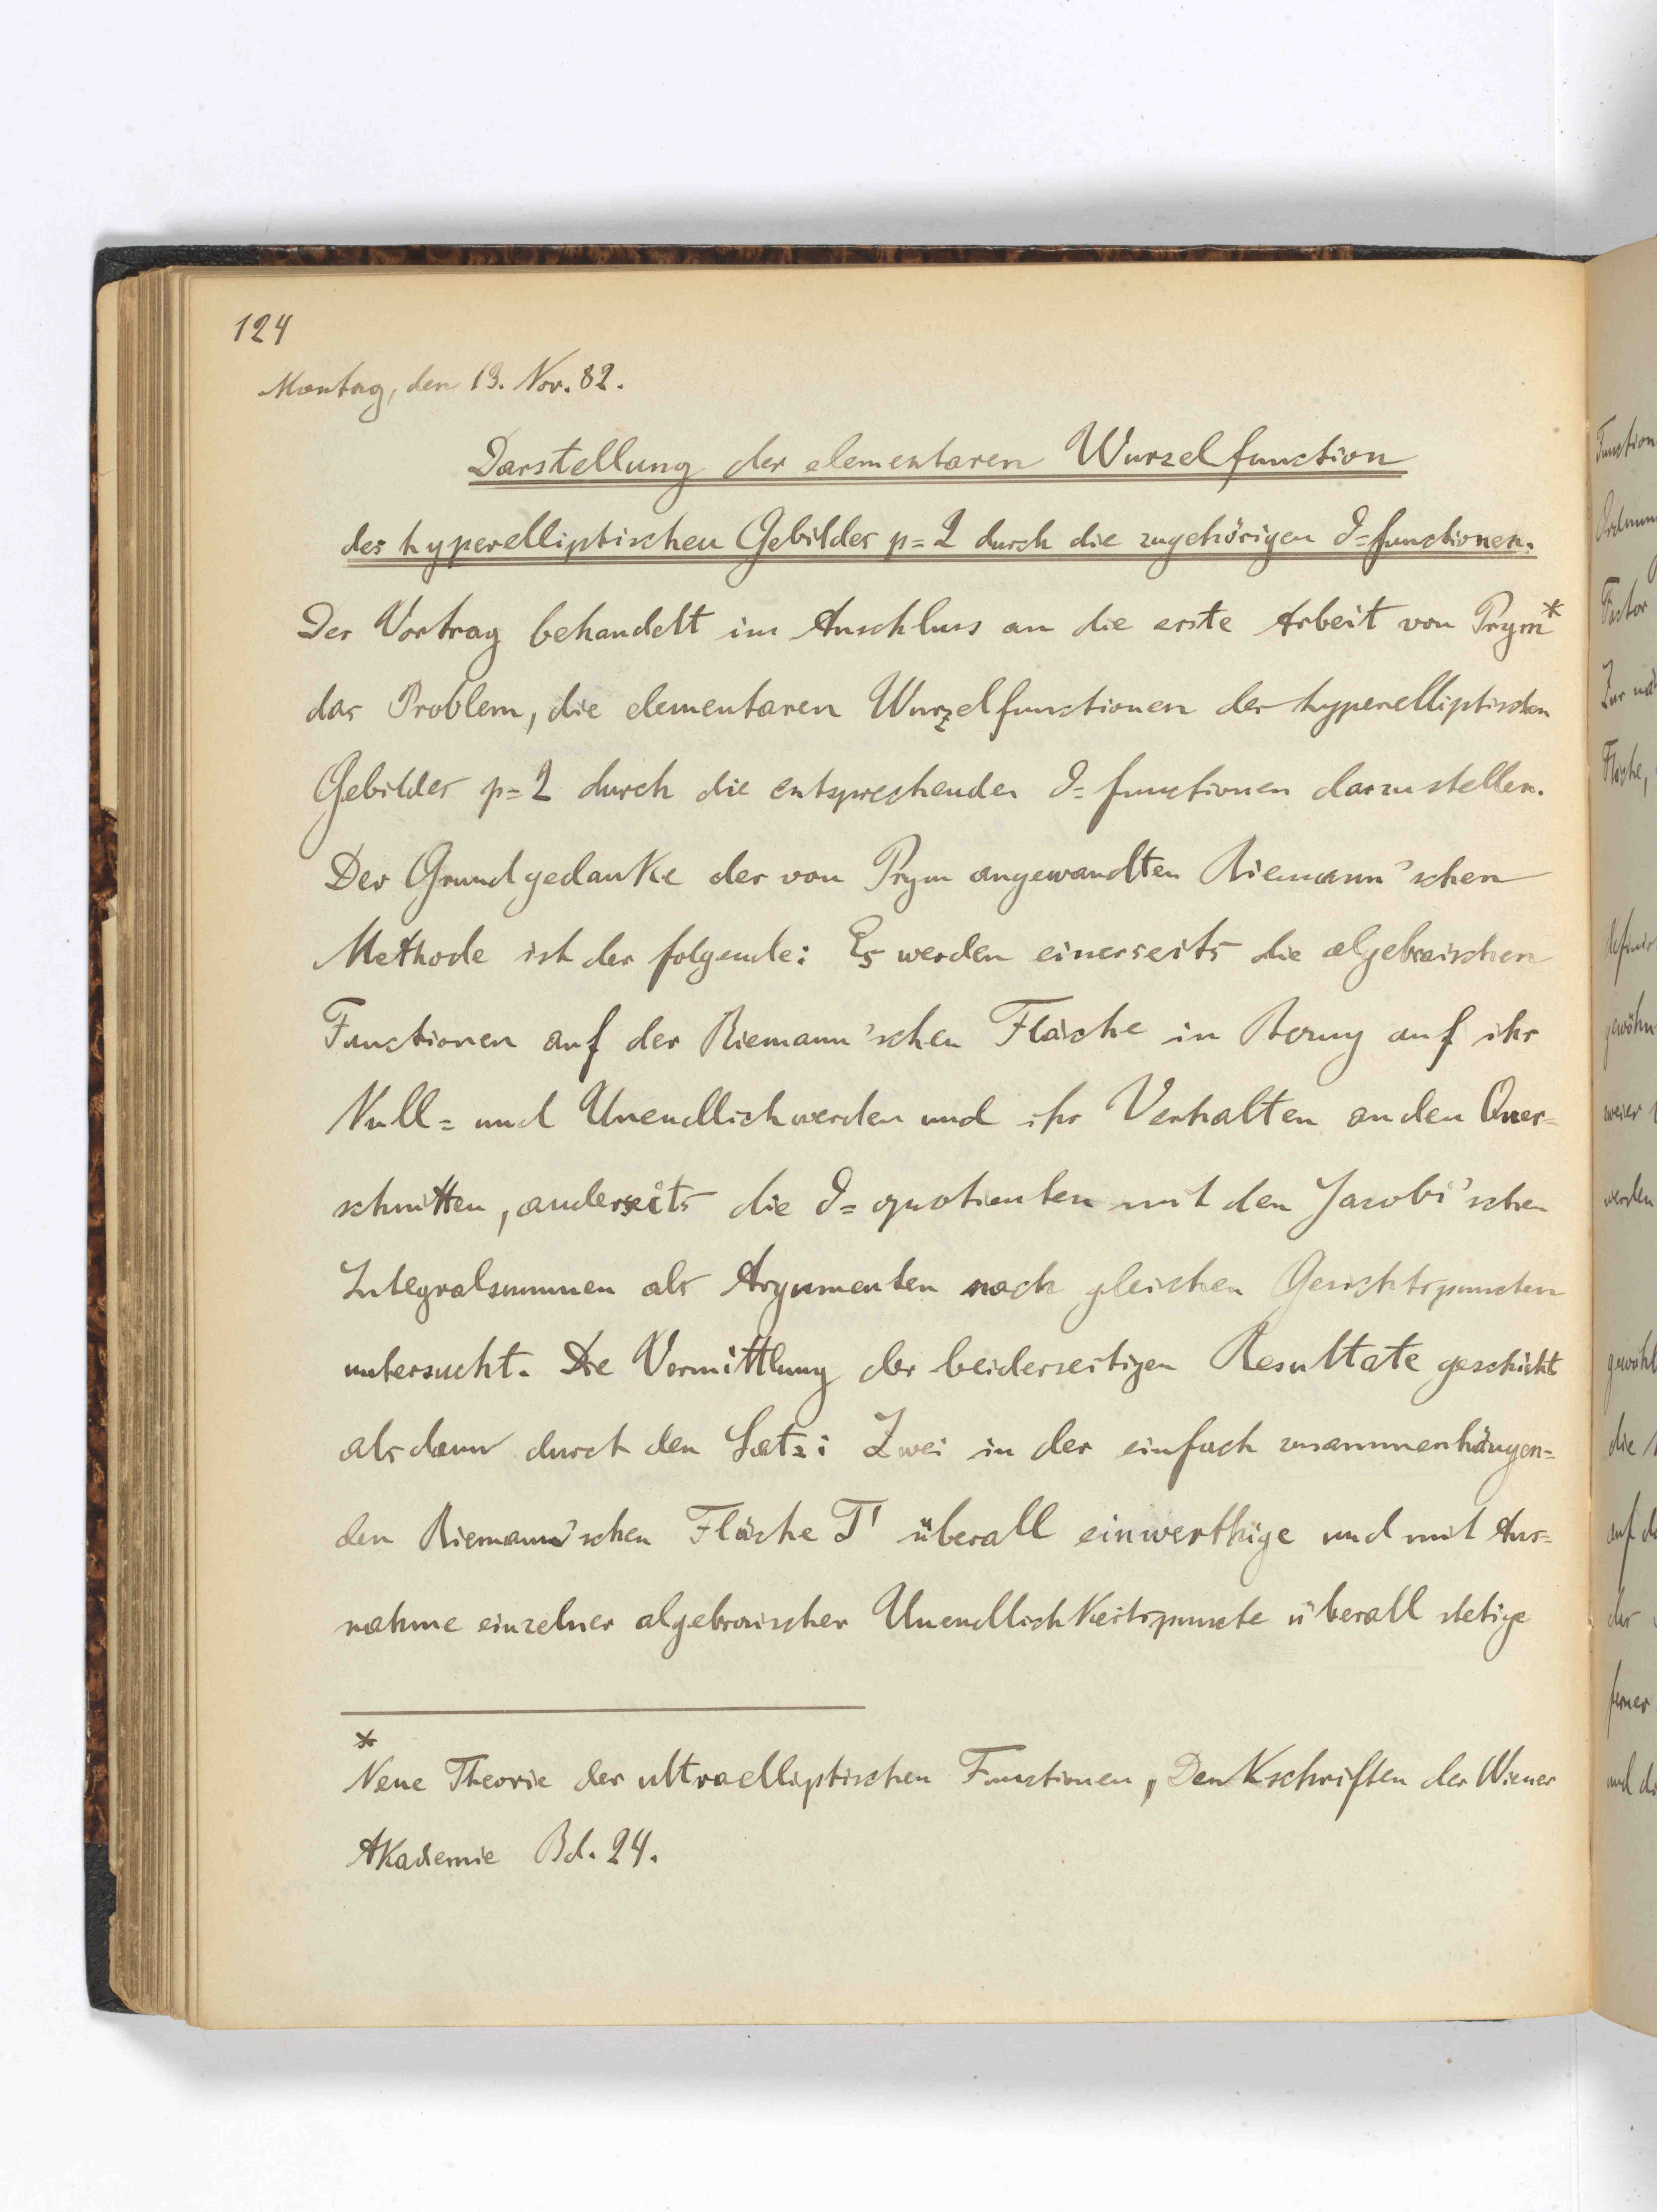 124
Montag, den 13. Nov. 82.
Darstellung der elementaren Wurzelfunction
des hyperelliptischen Gebildes p=2 durch die zugehörigen ϑ=functionen.
Der Vortrag behandelt im Anschluss an die erste Arbeit von Prym*
das Problem, die elementaren Wurzelfunctionen der hyperelliptischen
Gebildes p=2 durch die entsprechenden ϑ=functionen darzustellen.
Der Grundgedanke der von Prym angewandten Riemann'schen
Methode ist der folgende: Es werden einerseits die algebraischen
Functionen auf der Riemann'schen Fläche in Bezug auf ihr
Null= und Unendlichwerden und ihr Verhalten an den Quer=
schnitten, anderseits die ϑ=quotienten mit den Jacobi'schen
Integralsummen als Argumenten nach gleichen Gesichtspuncten
untersucht. Die Vermittlung der beiderseitigen Resultate geschieht
alsdann durch den Satz: Zwei in der einfach zusammenhängen=
den Riemann'schen Fläche T' überall einwerthige und mit Aus=
nahme einzelner algebraischer Unendlichkeitspuncte überall stetige
*
Neue Theorie der ultraelliptischen Functionen, Denkschriften der Wiener
Akademie Bd. 24.
Function
Factor
Fläche,
werden
ferner